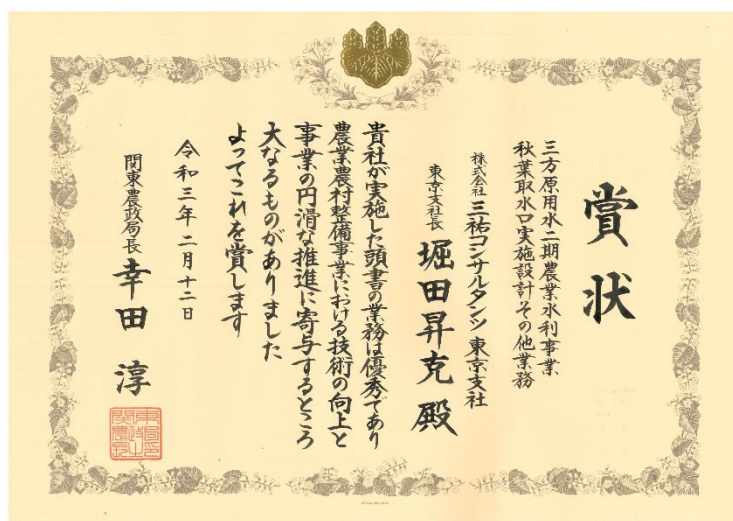 賞状
三方原用水二期農業水利事業
秋葉取水口実施設計その他業務
株式会社 三祐コンサルタンツ 東京支社
東京支社長 堀田昇克 殿
貴社が実施した頭書の業務は優秀であり
農業農村整備事業における技術の向上と
事業の円滑な推進に寄与するところ
大なるものがありました
よってこれを賞します
令和三年二月十二日
関東農政局長 幸田 淳